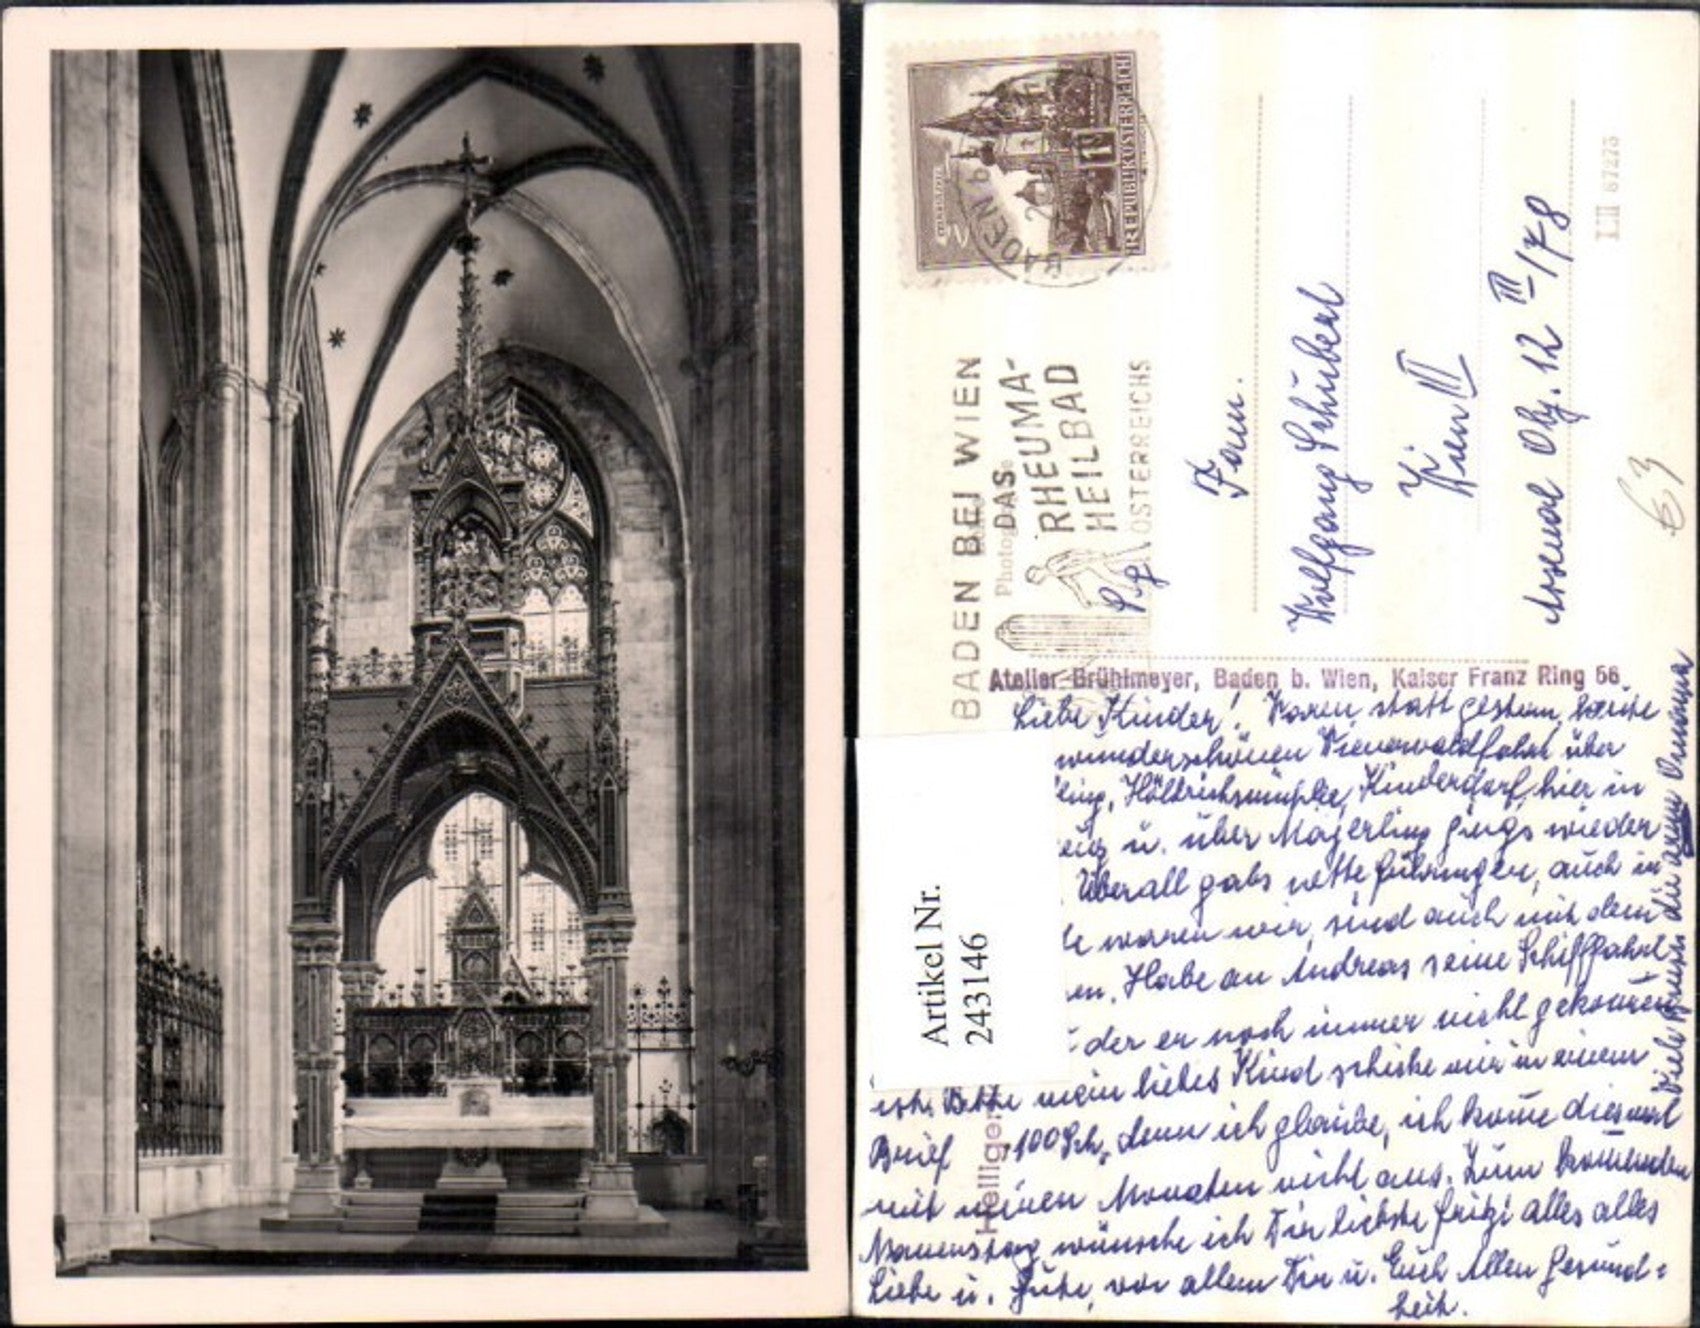 REPUBLIK ÖSTERREICH
1
BADEN b.
BADEN BEI WIEN
DAS
RHEUMA-
HEILBAD
ÖSTERREICHS
P.g.
Fam.
Wolfgang Schubert
Wien III
Arsenal Obj. 12 III/178
LII 67273
63
Atelier Brühlmeyer, Baden b. Wien, Kaiser Franz Ring 56
Heilige
Artikel Nr.
243146
Liebe Kinder! Waren statt gestern, heute
wunderschönen Wienerwaldfahrt über
Kinderdorf hier in
u. über Mayerling gings wieder
Überall gabs nette Führungen, auch in
waren wir, sind auch mit dem
en. Habe an Andreas seine Schifffahrt
der er noch immer nicht gekommen
ist. Bitte mein liebes Kind schicke mir in einem
Brief 100 Sch, denn ich glaube, ich komme diesmal
mit meinen Monaten nicht aus. Zum kommenden
Namenstag wünsche ich Dir liebste Fritzi alles alles
Liebe u. Gute, vor allem Dir u. Euch Allen Gesund=
heit.
Viele Grüsse die arme Omama